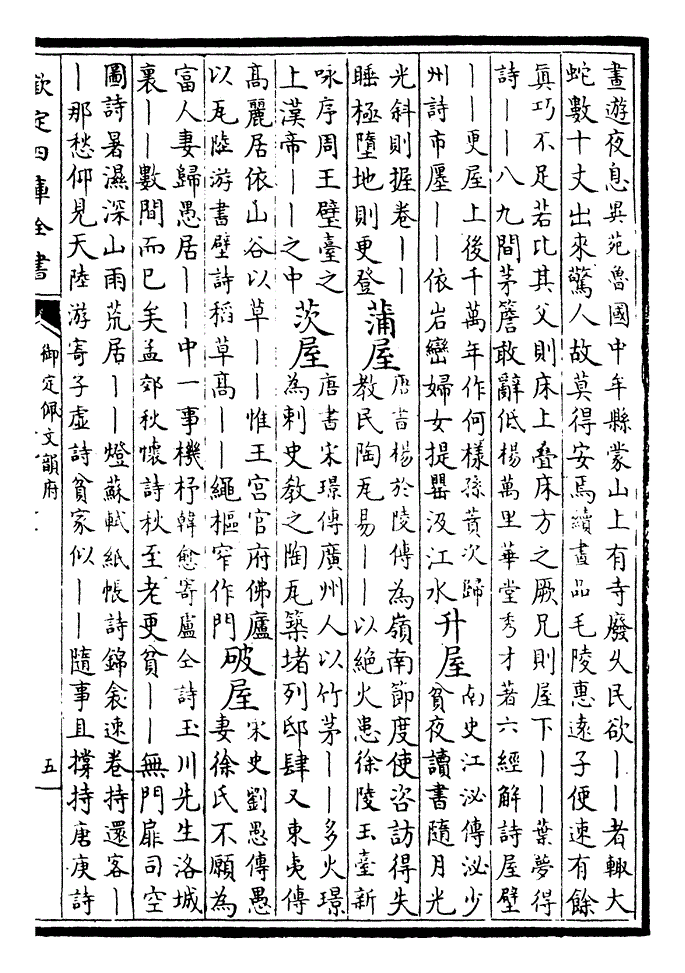 晝遊夜息異苑魯國中牟縣蒙山上有寺廢久民欲丨丨者輒大
蛇數十丈出來驚人故莫得安焉續畫品毛陵惠遠子便速有餘
真巧不足若比其父則床上疊床方之厥兄則屋下丨丨葉夢得
詩丨丨八九間茅簷敢辭低楊萬里華堂秀才著六經解詩屋壁
丨丨更屋上後千萬年作何樣孫蕡次歸
州詩市廛丨丨依岩巒婦女提罌汲江水
升屋
南史江泌傳泌少
貧夜讀書隨月光
光斜則握卷丨丨
睡極墮地則更登
蒲屋
唐書楊於陵傳為嶺南節度使咨訪得失
教民陶瓦易丨丨以絶火患徐陵玉臺新
咏序周王璧臺之
上漢帝丨丨之中
茨屋
唐書宋璟傳廣州人以竹茅丨丨多火璟
為刺史教之陶瓦築堵列邸肆又東夷傳
髙麗居依山谷以草丨丨惟王宮官府佛廬
以瓦陸游書壁詩稻草髙丨丨繩樞窄作門
破屋
宋史劉愚傳愚
妻徐氏不願為
富人妻歸愚居丨丨中一事機杼韓愈寄盧仝詩玉川先生洛城
裏丨丨數間而已矣孟郊秋懷詩秋至老更貧丨丨無門扉司空
圖詩暑濕深山雨荒居丨丨燈蘇軾紙帳詩錦衾速卷持還客丨
丨那愁仰見天陸游寄子虛詩貧家似丨丨隨事且撐持唐庚詩
欽定四庫全書
御定佩文韻府
五